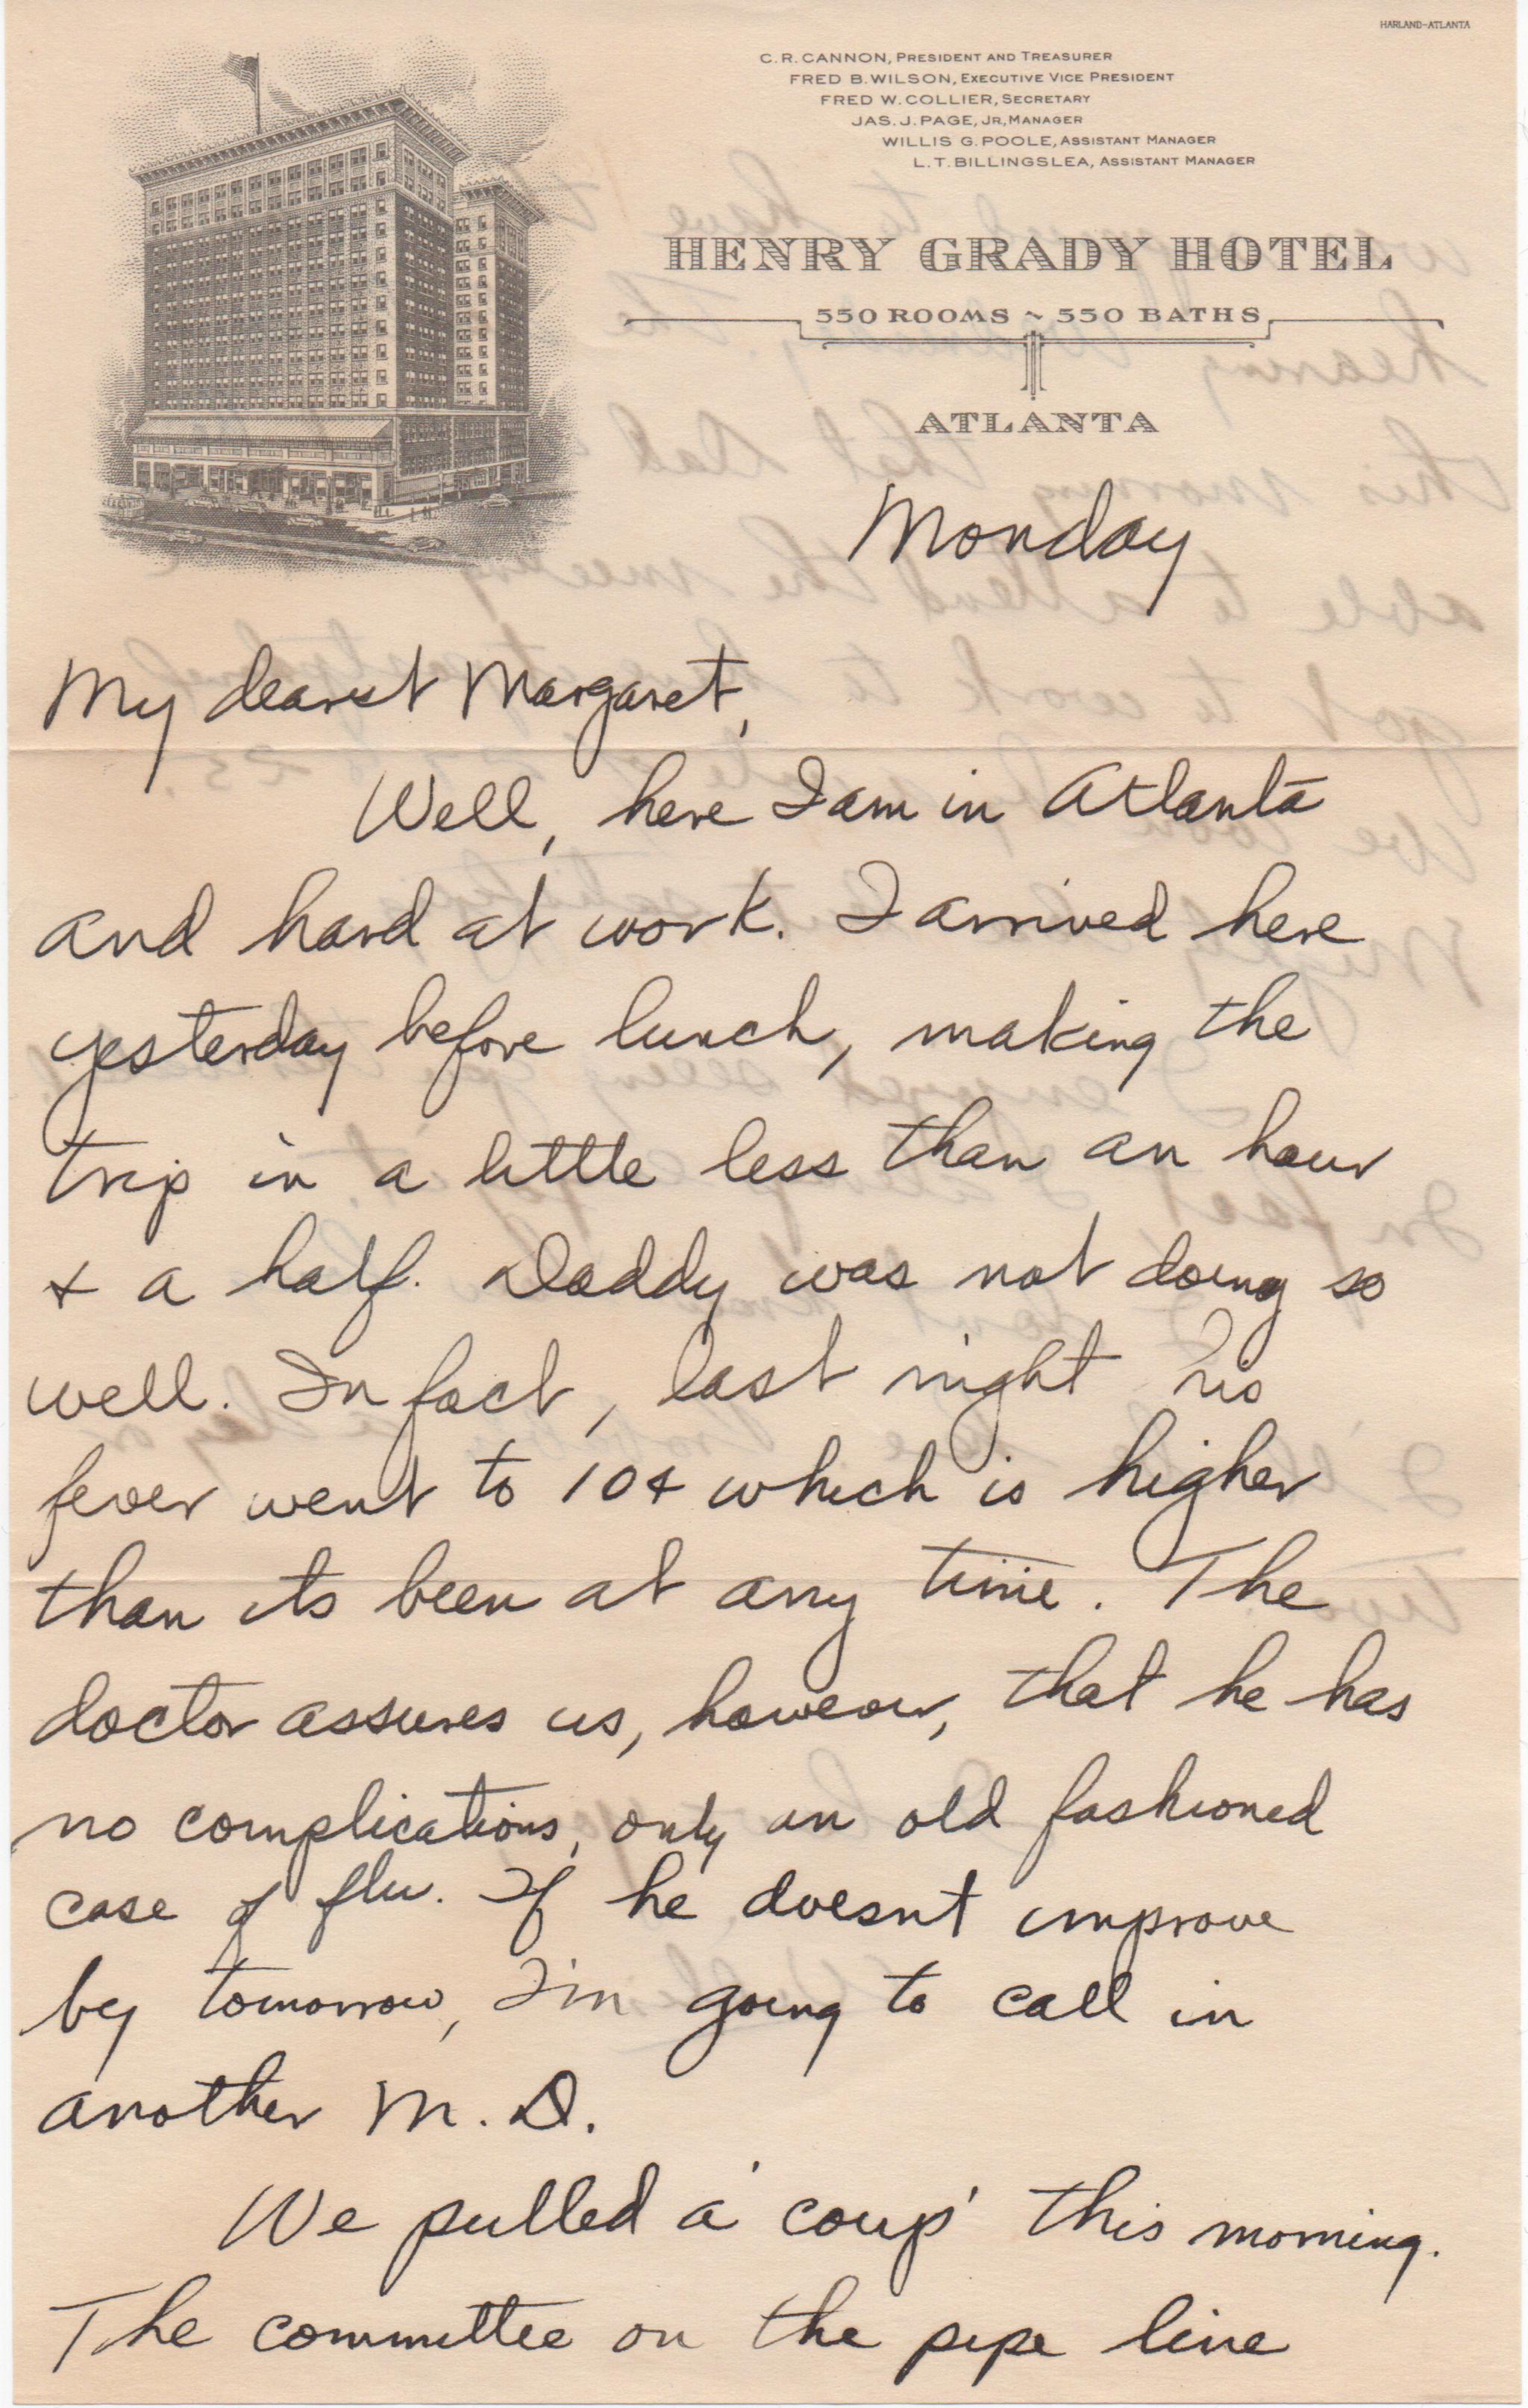 HARLAND-ATLANTA
C. R. CANNON, PRESIDENT AND TREASURER
FRED B. WILSON, EXECUTIVE VICE PRESIDENT
FRED W. COLLIER, SECRETARY
JAS. J. PAGE, JR, MANAGER
WILLIS G. POOLE, ASSISTANT MANAGER
L. T. BILLINGSLEA, ASSISTANT MANAGER
HENRY GRADY HOTEL
550 ROOMS ~ 550 BATHS
ATLANTA
Monday
My dearest Margaret,
Well, here I am in Atlanta
and hard at work. I arrived here
yesterday before lunch, making the
trip in a little less than an hour
& a half. Daddy was not doing so
well. In fact, last night his
fever went to 104 which is higher
than its been at any time. The
doctor assures us, however, that he has
no complications, only an old fashioned
case of flu. If he doesnt improve
by tomorrow, I'm going to call in
another M. D.
We pulled a 'coup' this morning.
The committee on the pipe line